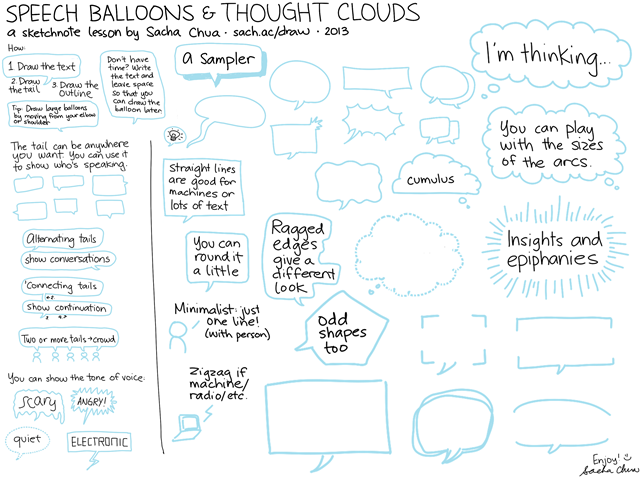 SPEECH BALLOONS & THOUGHT CLOUDS
a sketchnote lesson by Sacha Chua · sach.ac/draw · 2013
How:
1 Draw the text
2. Draw
the tail
3 Draw the
outline
Tip: Draw large balloons
by moving from your elbow
or shoulder
Don't have
time? Write
the text and
leave space
so that you
can draw the
balloon later
The tail can be anywhere
you want. You can use it
to show who's speaking.
Alternating tails
show conversations
Connecting tails
Show continuation
Two or more tails → crowd
You can show the tone of voice:
scary
ANGRY!
quiet
ELECTRONIC
a Sampler
I'm thinking...
You can play
with the sizes
of the arcs.
Straight lines
are good for
machines or
lots of text
cumulus
You can
round it
a little
Ragged
edges
give a
different
look
Insights and
epiphanies
Minimalist: just
one line!
(with person)
odd
shapes
too
Zigzag if
machine/
radio/etc.
Enjoy! :)
Sacha Chua